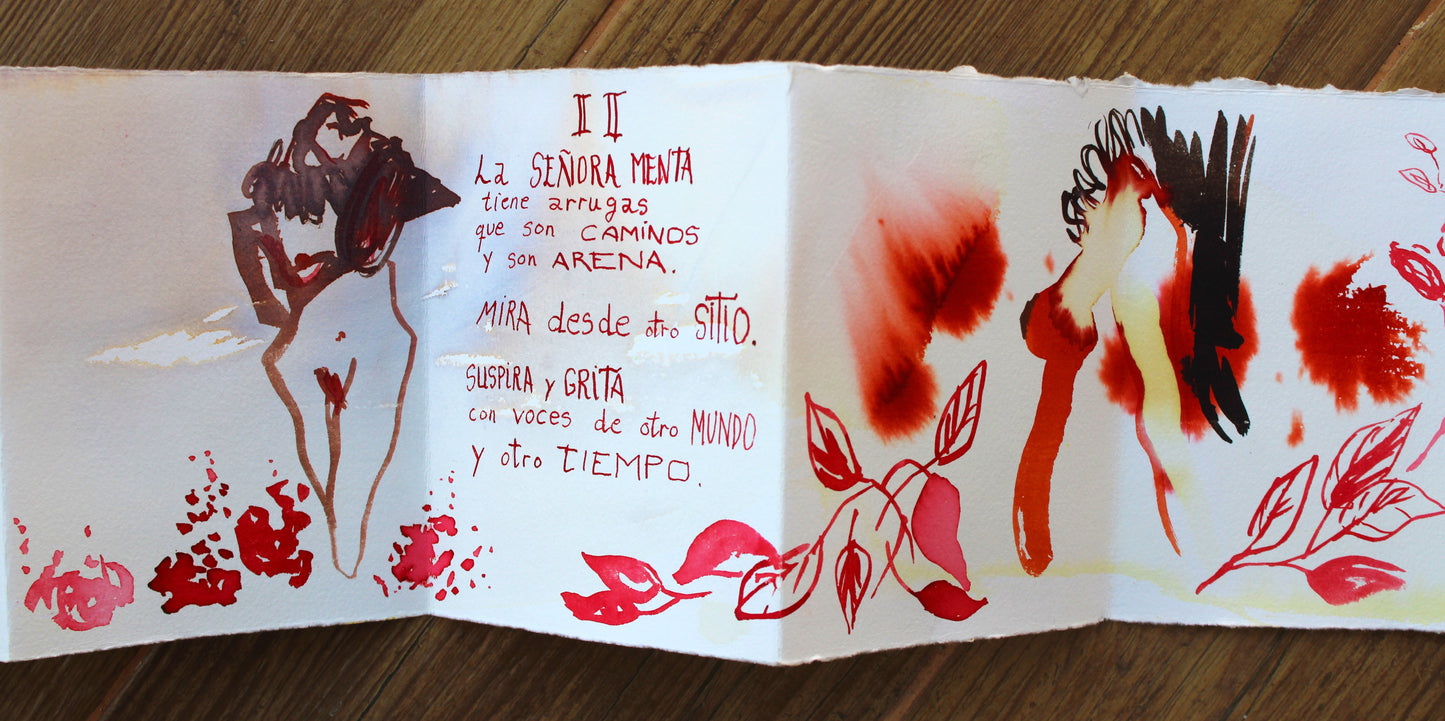 II
La SEÑORA MENTA
tiene arrugas
que son CAMINOS
y son ARENA.
MIRA desde otro SITIO.
SUSPIRA y GRITA
con voces de otro MUNDO
y otro TIEMPO.